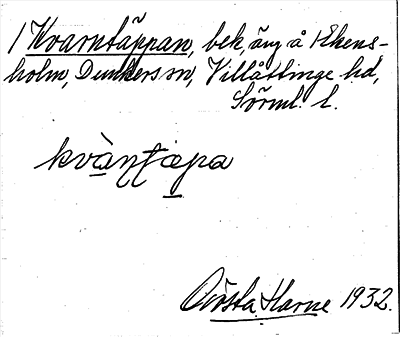 1 Kvarntäppan, bek, äng å Ekens-
holm, Dunkers sn, Villåttinge hd,
Sörml. l.
kvàn̩ṭæpa
Gösta Harne 1932.